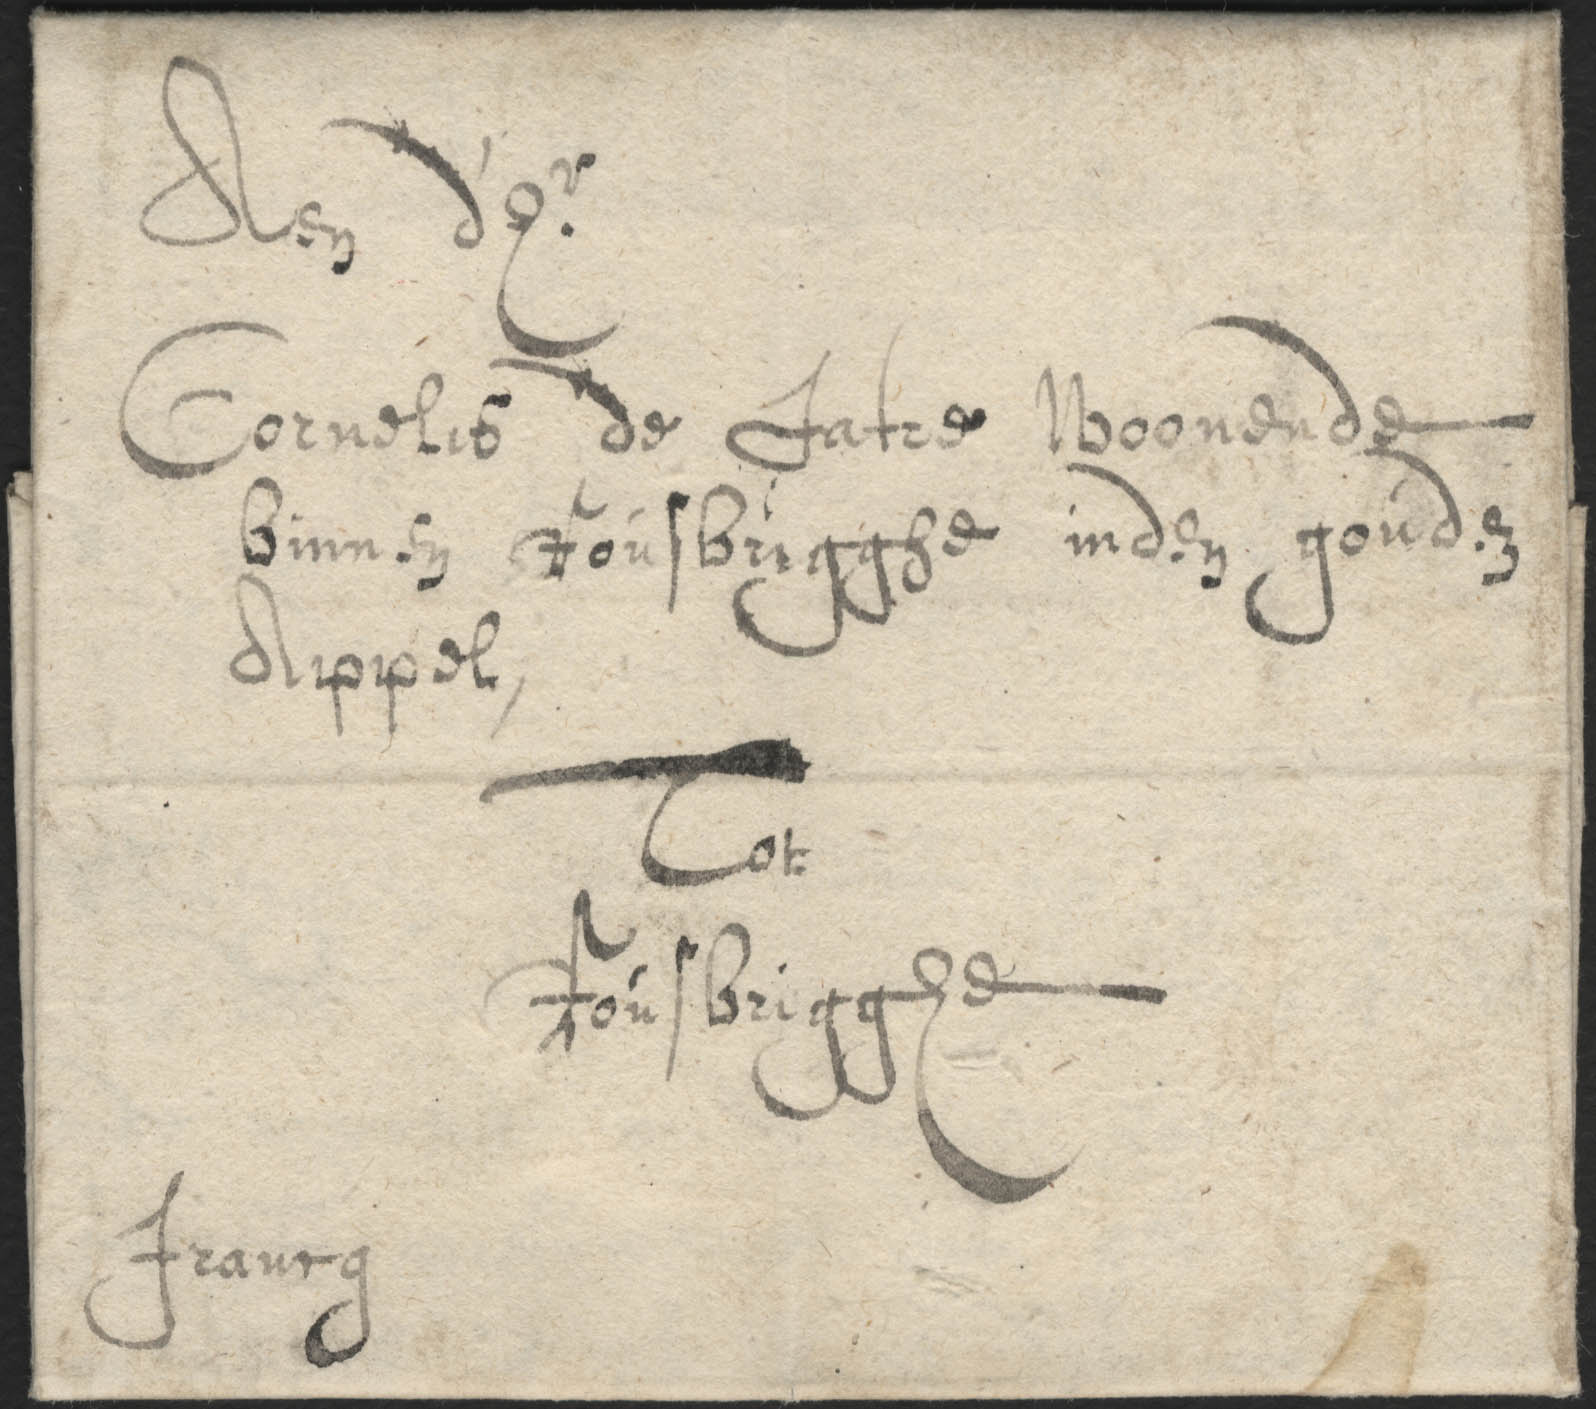 Aen d'hr.
Cornelis de Jatre Woonende
binnen Rousbrugghe inden gouden
Appel,
Tot
Rousbrugghe
francq